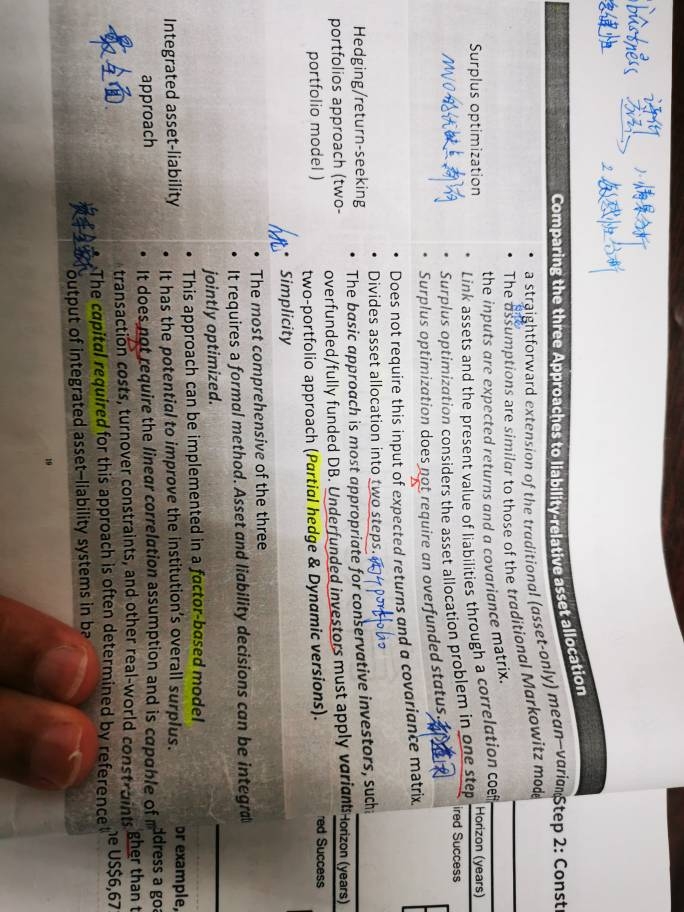 Comparing the three Approaches to liability-relative asset allocation
Surplus optimization
• a straightforward extension of the traditional (asset-only) mean–varian
• The assumptions are similar to those of the traditional Markowitz mode
the inputs are expected returns and a covariance matrix.
• Link assets and the present value of liabilities through a correlation coef
• Surplus optimization considers the asset allocation problem in one step
• Surplus optimization does not require an overfunded status.
Hedging/return-seeking
portfolios approach (two-
portfolio model )
• Does not require this input of expected returns and a covariance matrix.
• Divides asset allocation into two steps. 两个portfolio
• The basic approach is most appropriate for conservative investors, such
overfunded/fully funded DB. Underfunded investors must apply variants
two-portfolio approach (Partial hedge & Dynamic versions).
• Simplicity
Integrated asset-liability
approach
最全面
• The most comprehensive of the three
• It requires a formal method. Asset and liability decisions can be integrat
jointly optimized.
• This approach can be implemented in a factor-based model
• It has the potential to improve the institution's overall surplus.
• It does not require the linear correlation assumption and is capable of m
transaction costs, turnover constraints, and other real-world constraints
• The capital required for this approach is often determined by reference t
output of integrated asset–liability systems in ba
19
Step 2: Const
Horizon (years)
ired Success
Horizon (years)
red Success
or example,
ddress a goa
gher than t
he US$6,67